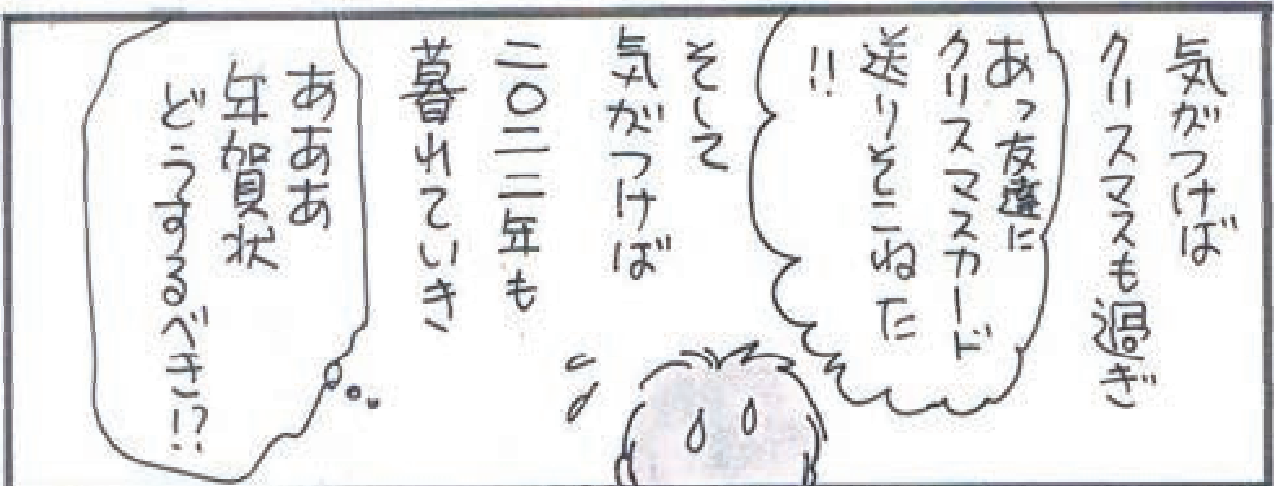 気がつけば
クリスマスも過ぎ
あっ友達に
クリスマスカード
送りそこねた
!!
そして
気がつけば
二〇二二年も
暮れていき
あああ
年賀状
どうするべき!?